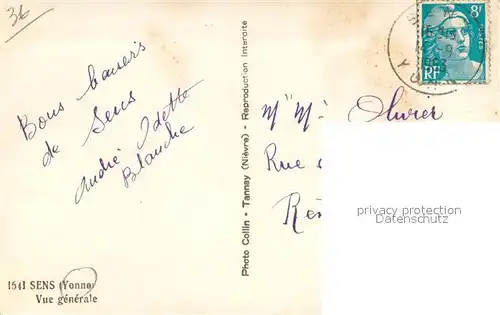 36
Bons baisers
de Sens
André Odette
Blanche
1641 SENS (Yonne)
Vue générale
Photo Collin - Tannay (Nièvre) - Reproduction Interdite
8F
POSTES
RF
Mr Mme Olivier
Rue
privacy protection
datenschutz